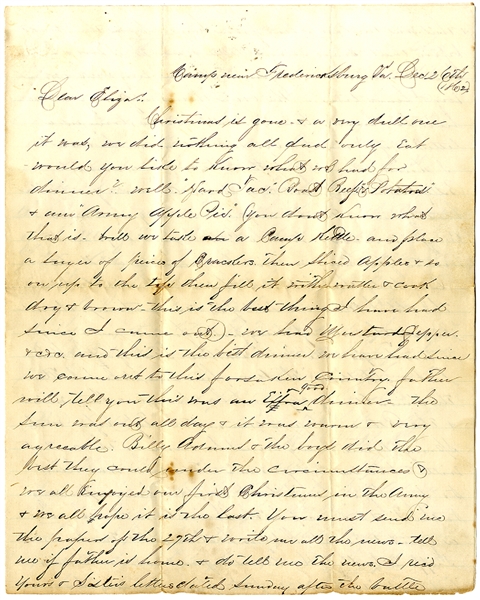 Camp near Fredericksburg Va. Dec 26th
1862
Dear Eliza.
Christmas is gone & a very dull one
it was, we did nothing all day only Eat
would you like to know what we had for
dinner? well "Hard Tac" Roast Beef & Potatoes
& an "Army Apple Pie" (you dont know what
that is. well we take a Camp Kettle and place
a layer of pieces of Crackers, then Sliced Apples & so
on up to the top then fill it with water & cook
dry & brown - this is the best thing I have had
since I came out) - we had Mustard, Pepper
&c &c. and this is the best dinner we have had since
we came out to this forsaken Country. father
will tell you this was an Extra good dinner - the
Sun was out all day & it was warm & very
agreeable. Billy & the boys did the
best they could under the circumstances,
we all Enjoyed our first Christmas in the Army
& we all hope it is the last. You must send me
the papers of the 27th & write me all the news - tell
me if father is home. & do tell me the news. I recd
Yours & Sisters letters dated Sunday after the battle